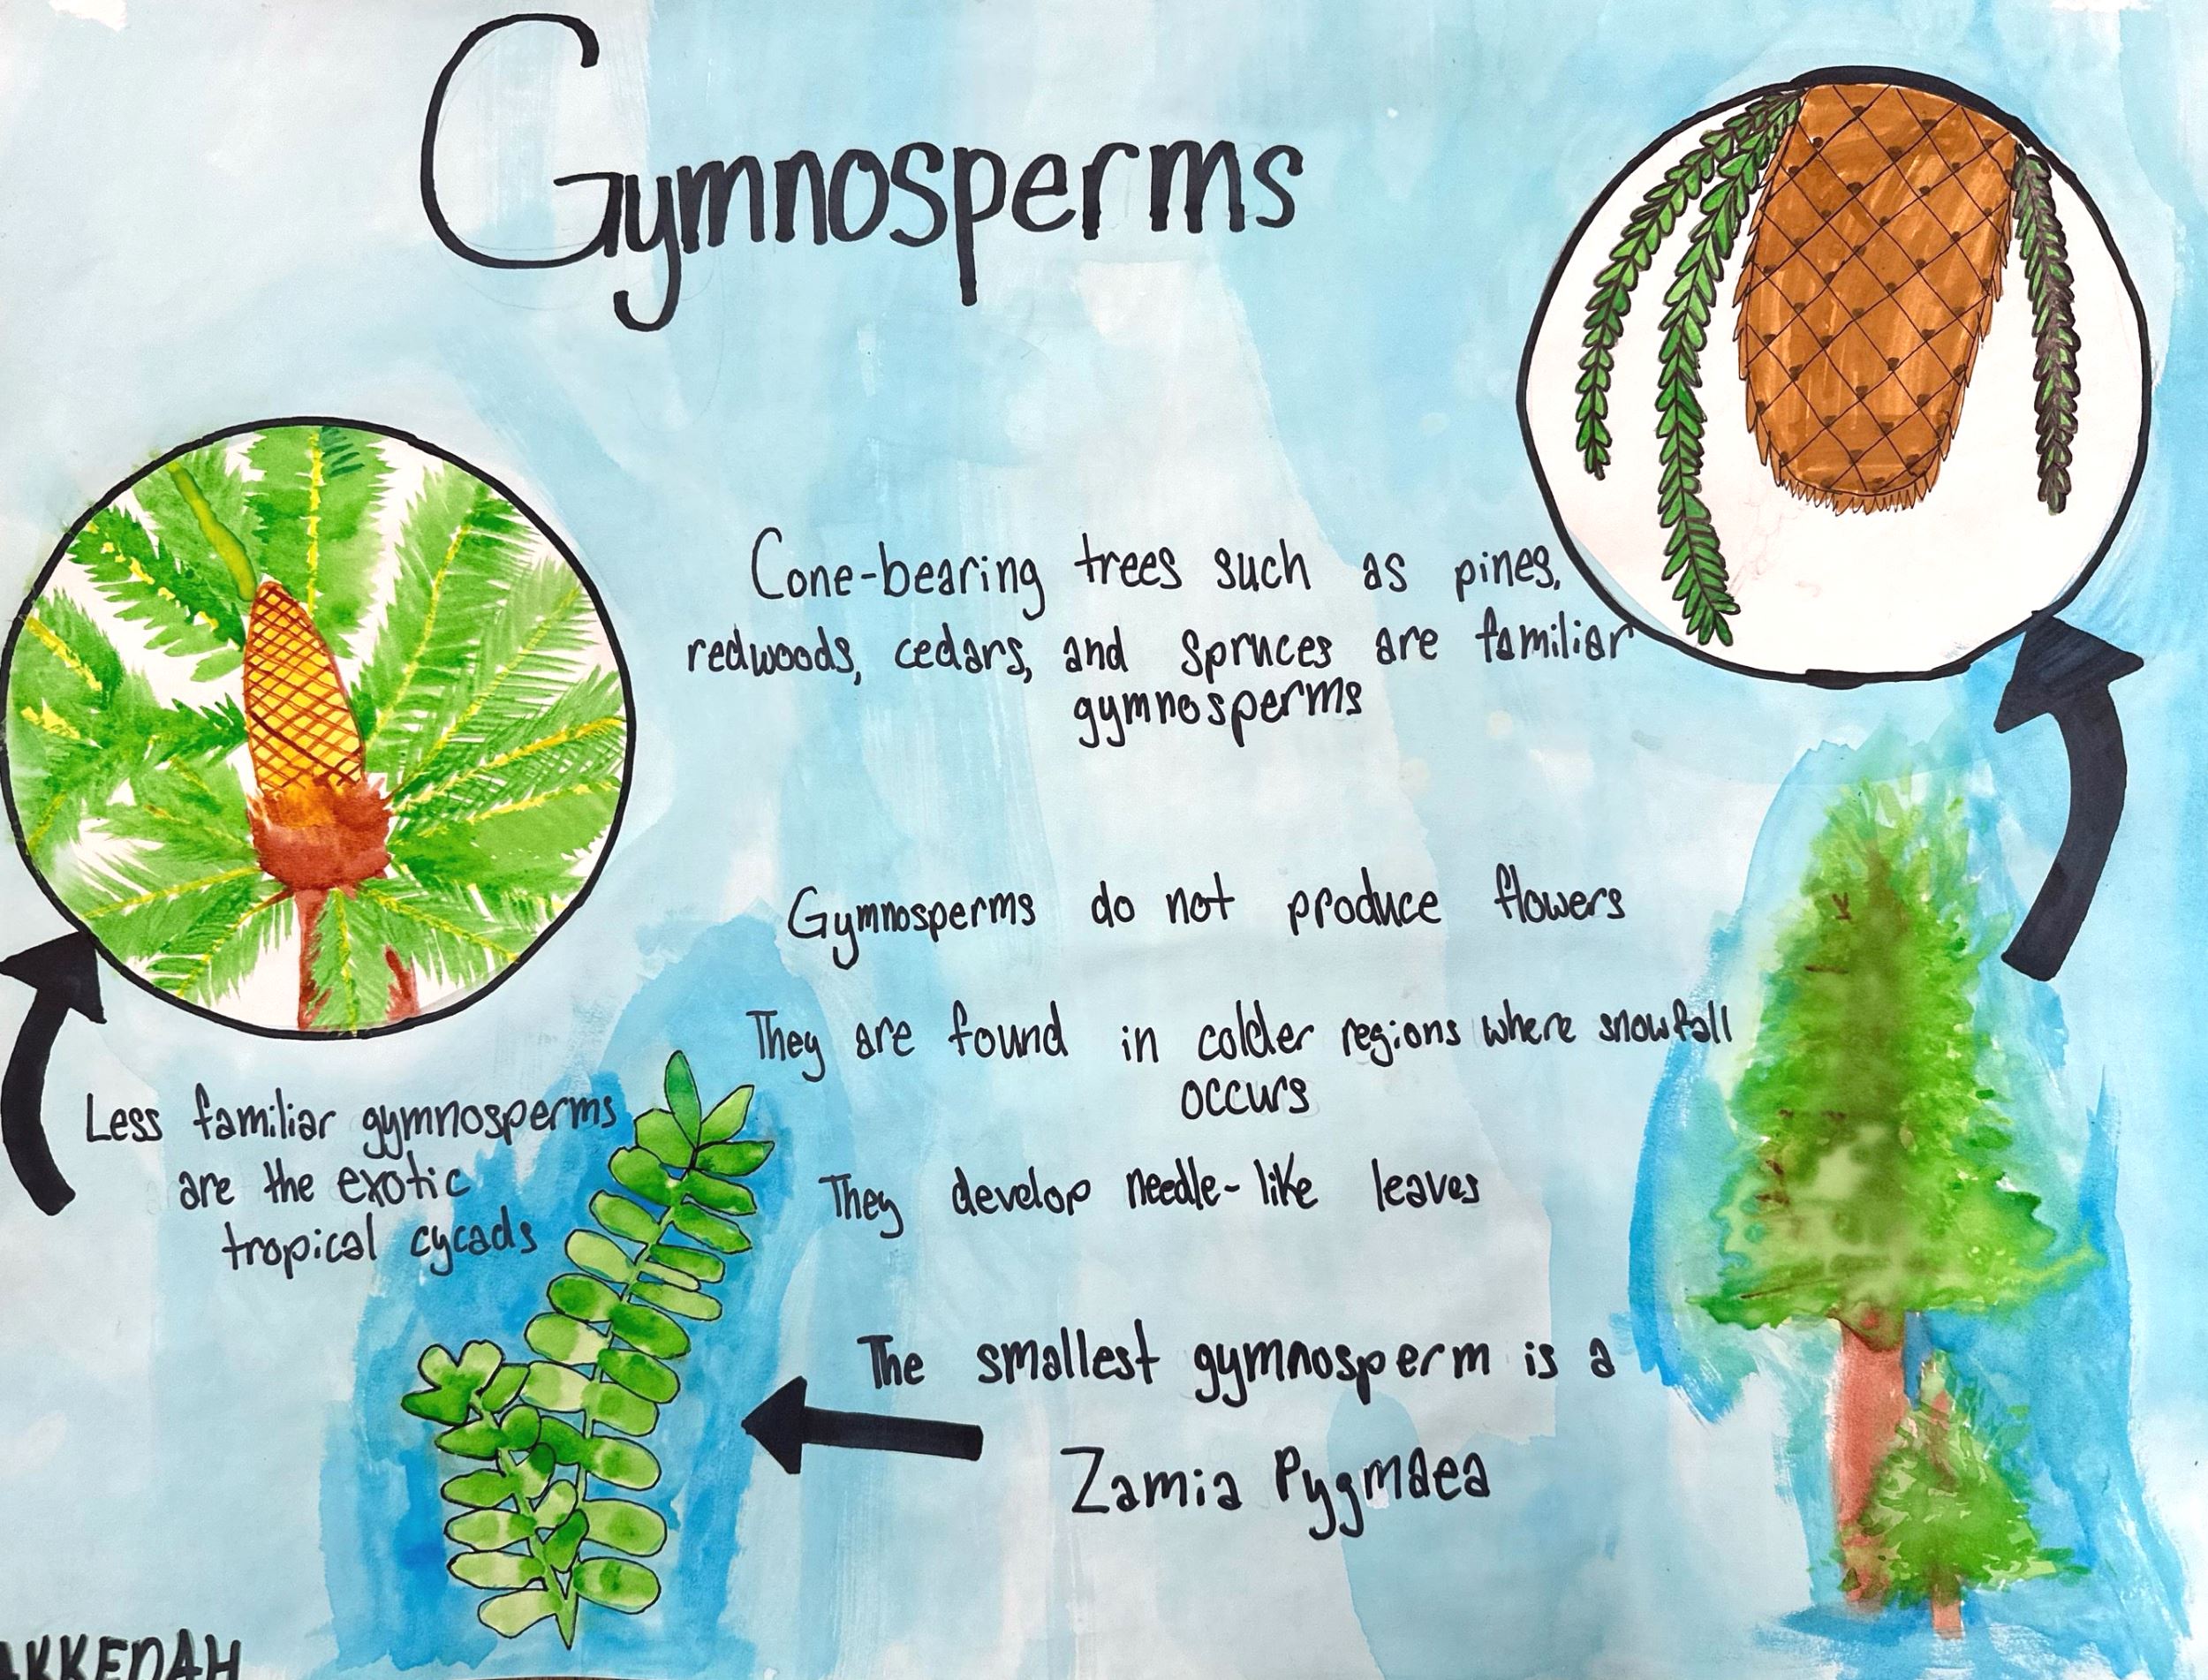 Gymnosperms
Cone-bearing trees such as pines,
redwoods, cedars, and Spruces are familiar
gymnosperms
Gymnosperms do not produce flowers
They are found in colder regions where snowfall
occurs
They develop needle-like leaves
Less familiar gymnosperms
are the exotic
tropical cycads
The smallest gymnosperm is a
Zamia Pygmaea
AKKEDAH